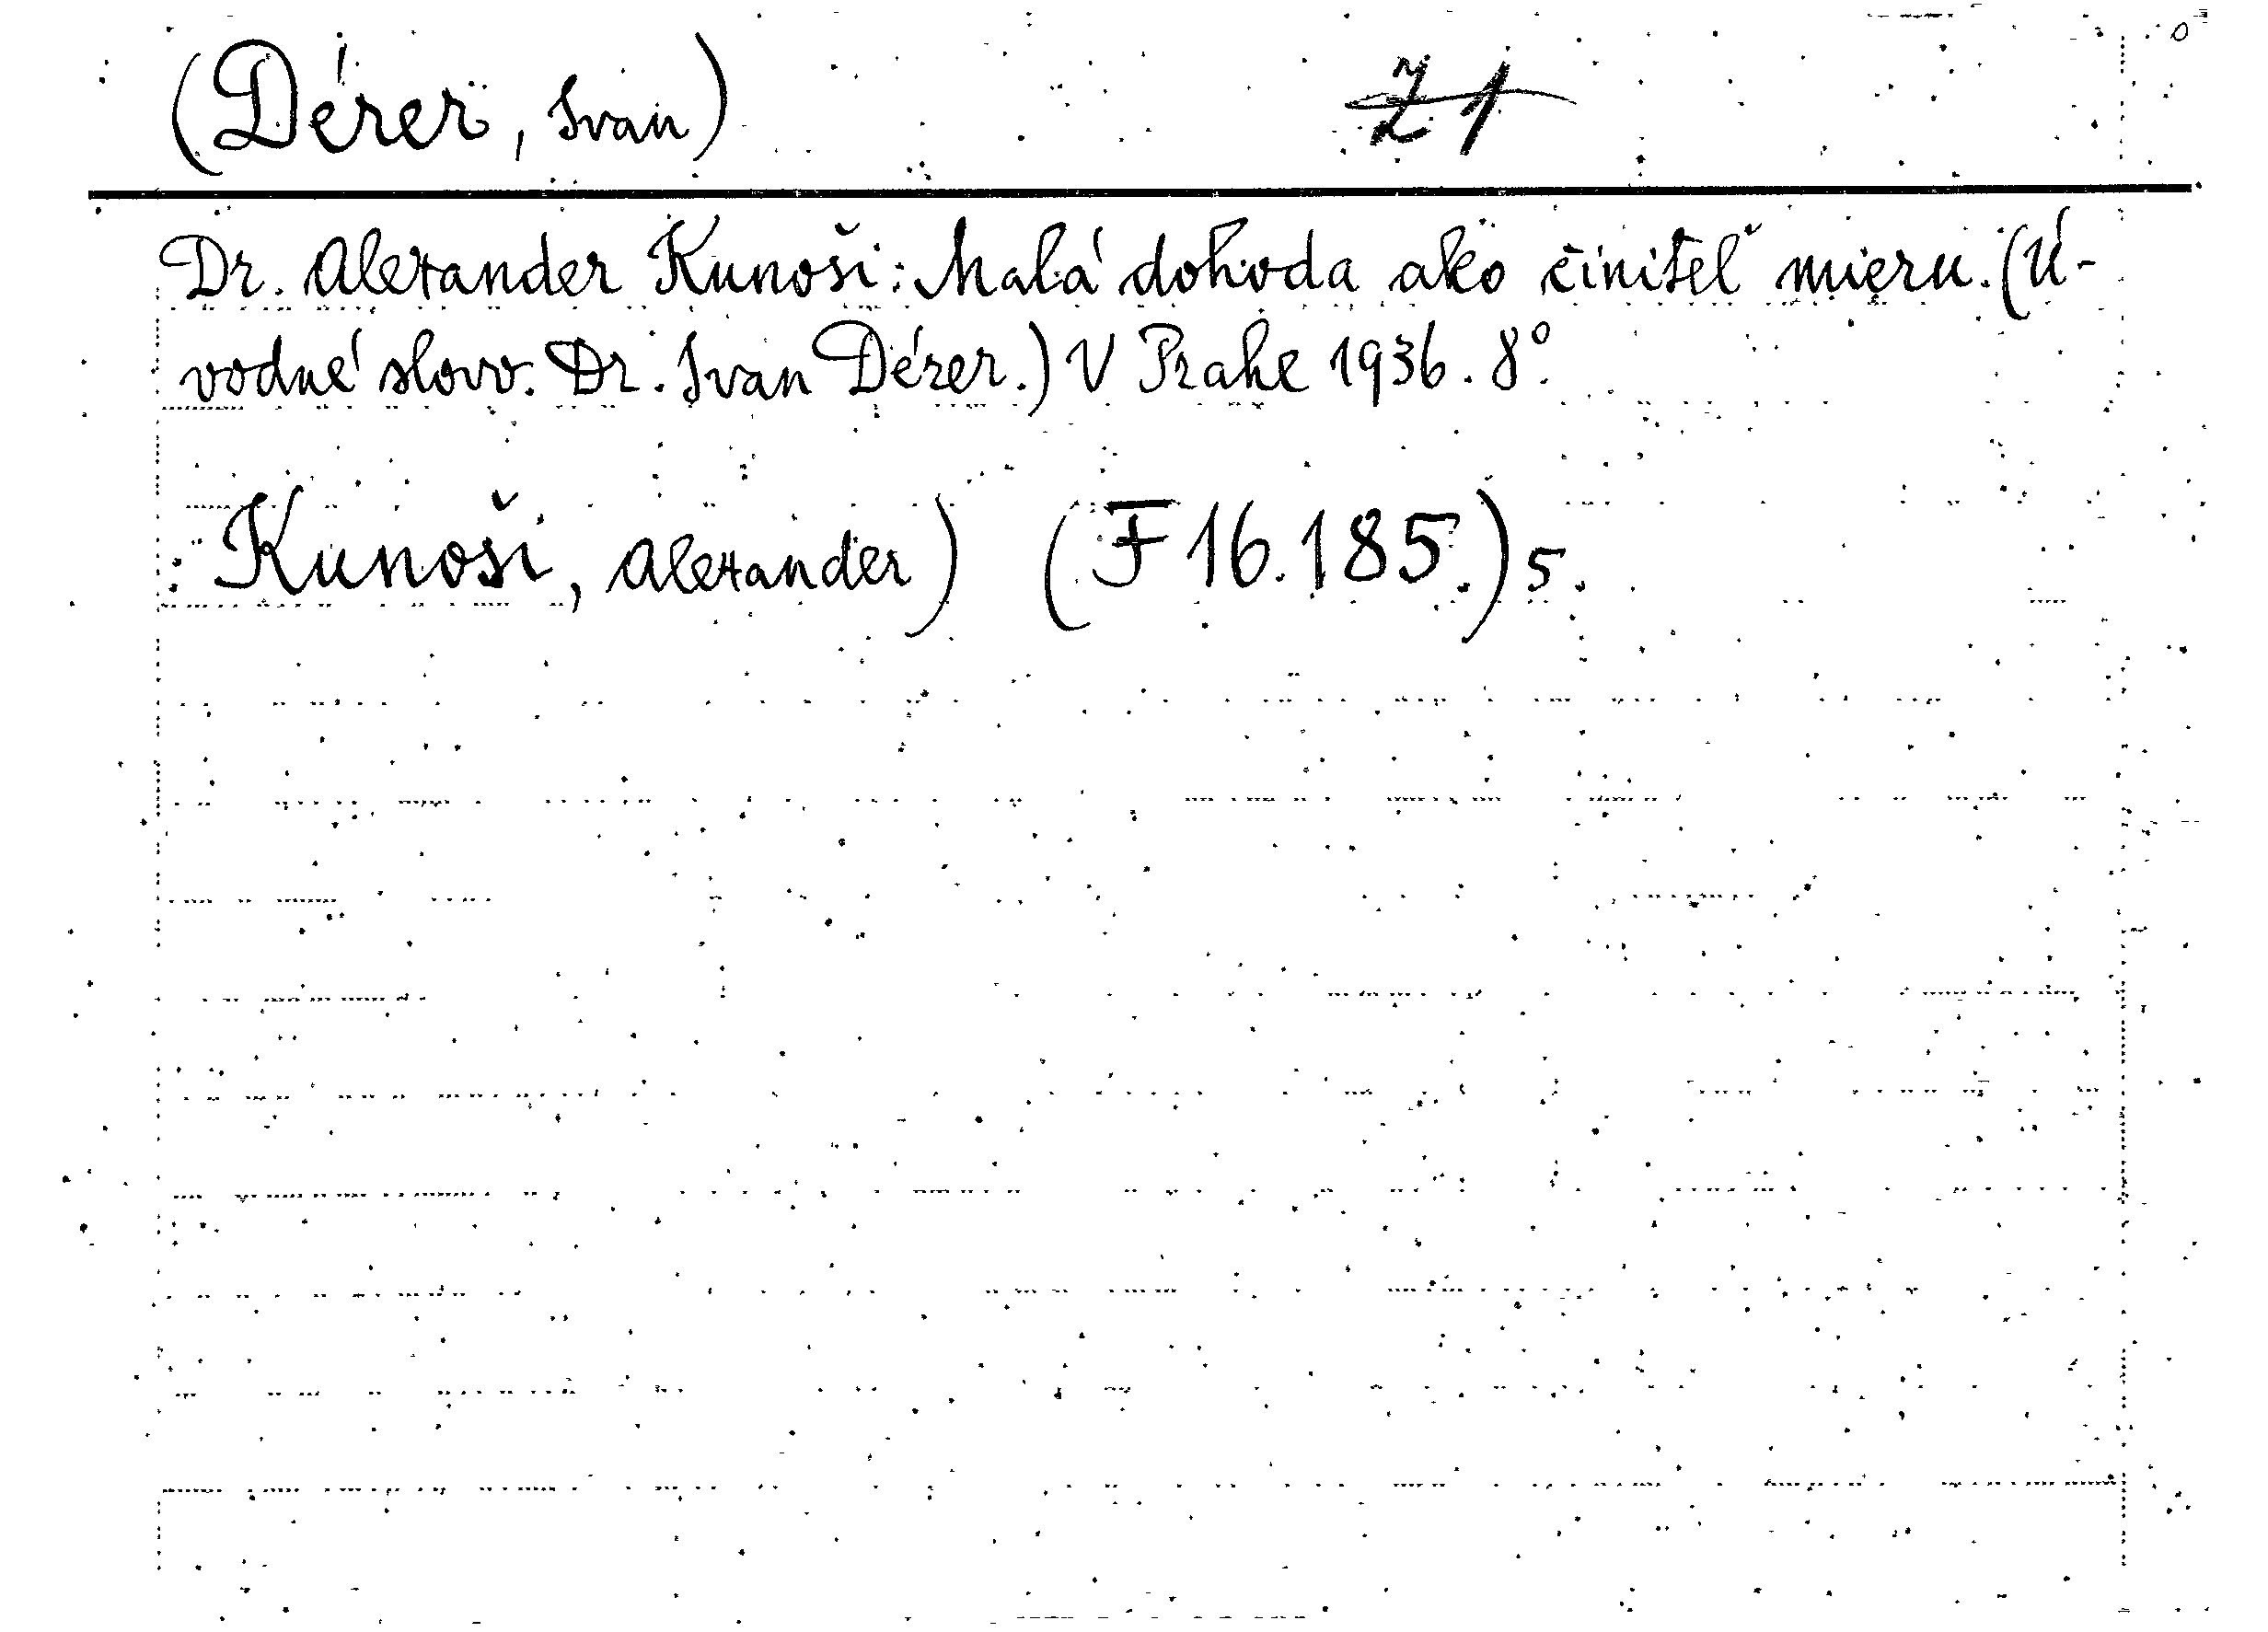 (Dérer, Ivan) Z 1
Dr. Alexander Kunoši: Malá dohoda ako činiteľ mieru. (Ú-
vodné slovo: Dr. Ivan Dérer.) V Prahe 1936. 8°.
Kunoši, Alexander) (F 16.185.) 5.